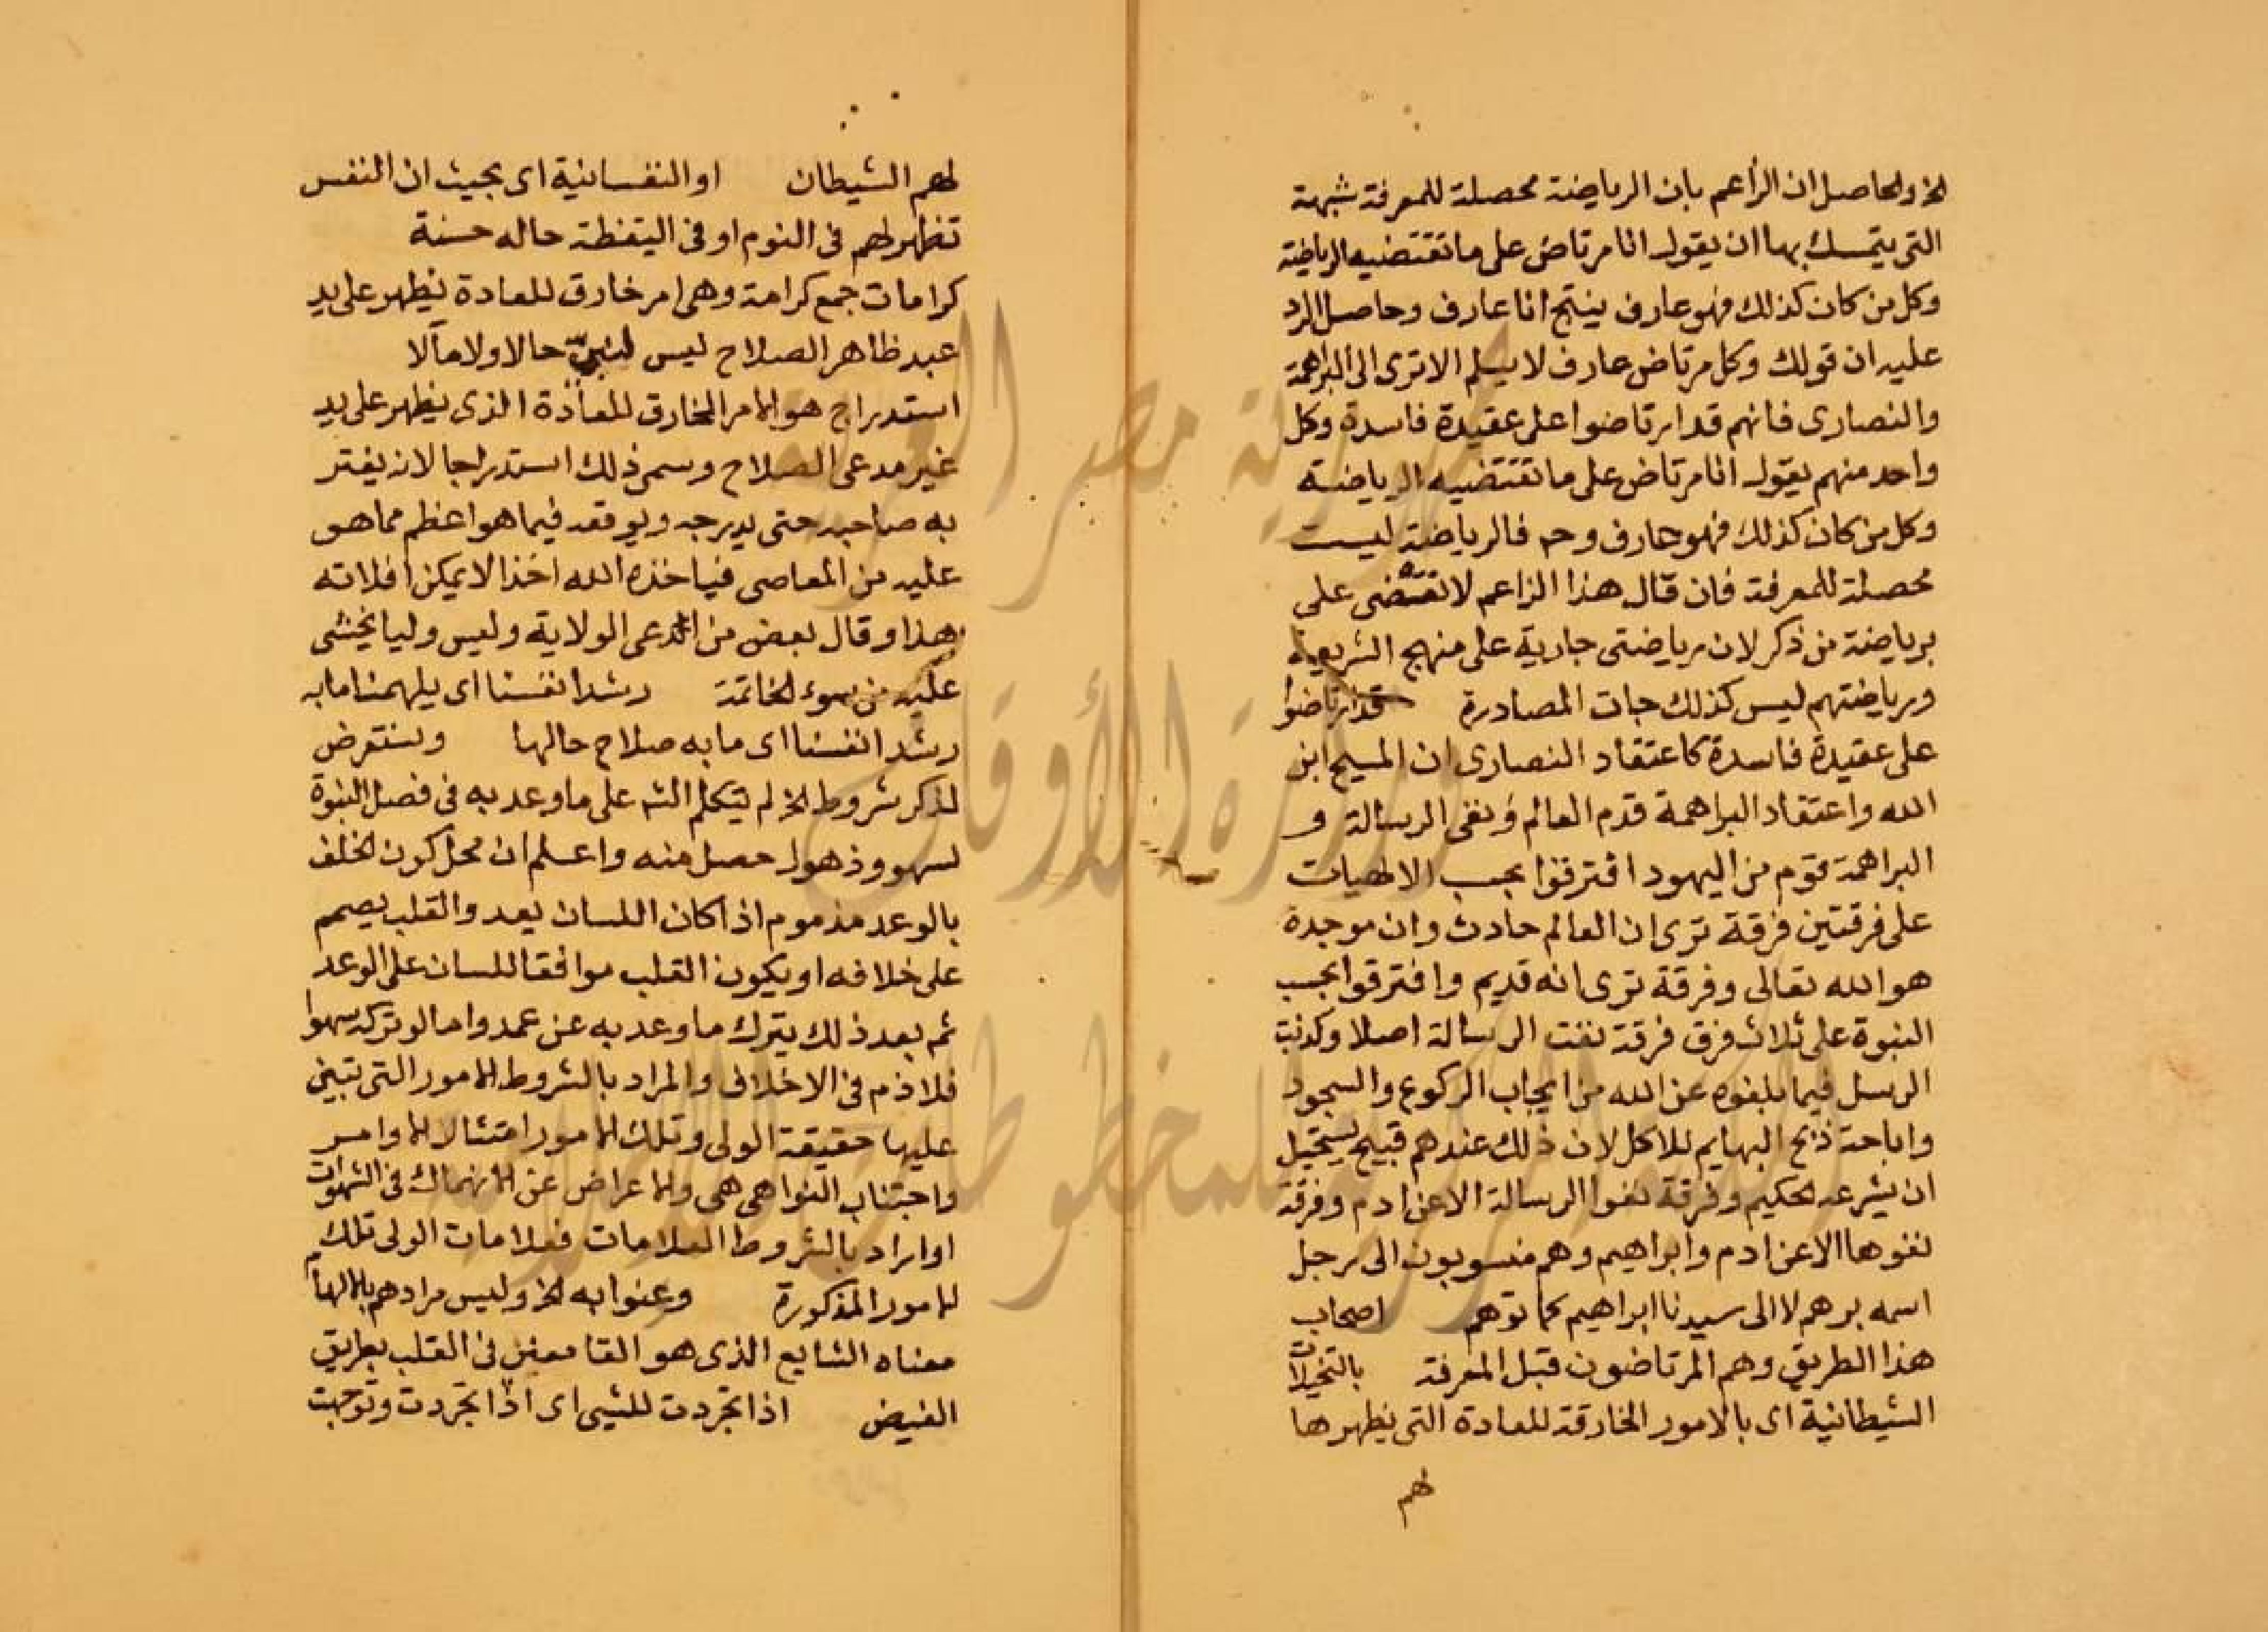 الخ والحاصل ان الزاعم بان الرياضة محصلة للمعرفة شبهته
التى يتمسك بها ان يقول انا مرتاض على ما تقتضيه الرياضة
وكل من كان كذلك فهو عارف ينتج انا عارف وحاصل الرد
عليه ان قولك وكل مرتاض عارف لا يسلم الا ترى الى البراهمة
والنصارى فانهم قد ارتاضوا على عقيدة فاسدة وكل
واحد منهم يقول انا مرتاض على ما تقتضيه الرياضة
وكل من كان كذلك فهو عارف وح فالرياضة ليست
محصلة للمعرفة فان قال هذا الزاعم لا تقتضى على
برياضة من ذكر لان رياضتى جارية على منهج الشريعة
ورياضتهم ليس كذلك جات المصادرة قد ارتاضوا
على عقيدة فاسدة كاعتقاد النصارى ان المسيح ابن
الله واعتقاد البراهمة قدم العالم ونفى الرسالة و
البراهمة قوم من اليهود افترقوا بحسب الالهيات
على فرقتين فرقة ترى ان العالم حادث وان موجده
هو الله تعالى وفرقة ترى انه قديم وافترقوا بحسب
النبوة على ثلاث فرق فرقة نفت الرسالة اصلا وكذبت
الرسل فيما بلغوه عن الله من ايجاب الركوع والسجود
واباحة ذبح البهايم للاكل لان ذلك عندهم قبيح يستحيل
ان يشرعه الحكيم وفرقة نفوا الرسالة الا عن ادم وفرقة
نفوها الا عن ادم وابراهيم وهم منسوبون الى رجل
اسمه برهم لا الى سيدنا ابراهيم كما توهم اصحاب
هذا الطريق وهم المرتاضون قبل المعرفة بالتخيلات
الشيطانية اى بالامور الخارقة للعادة التى يظهرها
لهم
لهم الشيطان او النفسانية اى بحيث ان النفس
تظهر لهم فى النوم او فى اليقظة حاله حسنة
كرامات جمع كرامة وهى امر خارق للعادة يظهر على يد
عبد ظاهر الصلاح ليس لنبى حالا ولا مآلا
استدراج هو الامر الخارق للعادة الذى يظهر على يد
غير مدعى الصلاح وسمى ذلك استدراجا لانه يغتر
به صاحبه حتى يدرجه ويوقعه فيما هو اعظم مما هو
عليه من المعاصى فياخذه الله اخذا لا يمكن افلاته
هذا وقال بعض من المدعى الولاية وليس وليا يخشى
عليه من سوء الخاتمة رشد انفسنا اى يلهمنا ما به
رشد انفسنا اى ما به صلاح حالها وسنتعرض
لذكر شروط الخ لم يتكلم الشم على ما وعد به فى فصل النبوة
لسهو وذهول حصل منه واعلم ان محل كون الخلف
بالوعد مذموم اذا كان اللسان يعد والقلب يصمم
على خلافه او يكون القلب موافقا للسان على الوعد
ثم بعد ذلك يترك ما وعد به عن عمد واما لو تركه سهوا
فلا ذم فى الاخلاف والمراد بالشروط الامور التى تبتنى
عليها حقيقة الولى وتلك الامور امتثال الاوامر
واجتناب النواهى هى والاعراض عن الانهماك فى الشهوات
او اراد بالشروط العلامات فعلامات الولى تلك
الامور المذكورة وعنوا به الخ وليس مرادهم بالالهام
معناه الشايع الذى هو القا معنى فى القلب بطريق
الفيض اذا تجردت للشيى اى اذا تجردت وتوجهت
جمهورية مصر العربية
وزارة الأوقاف